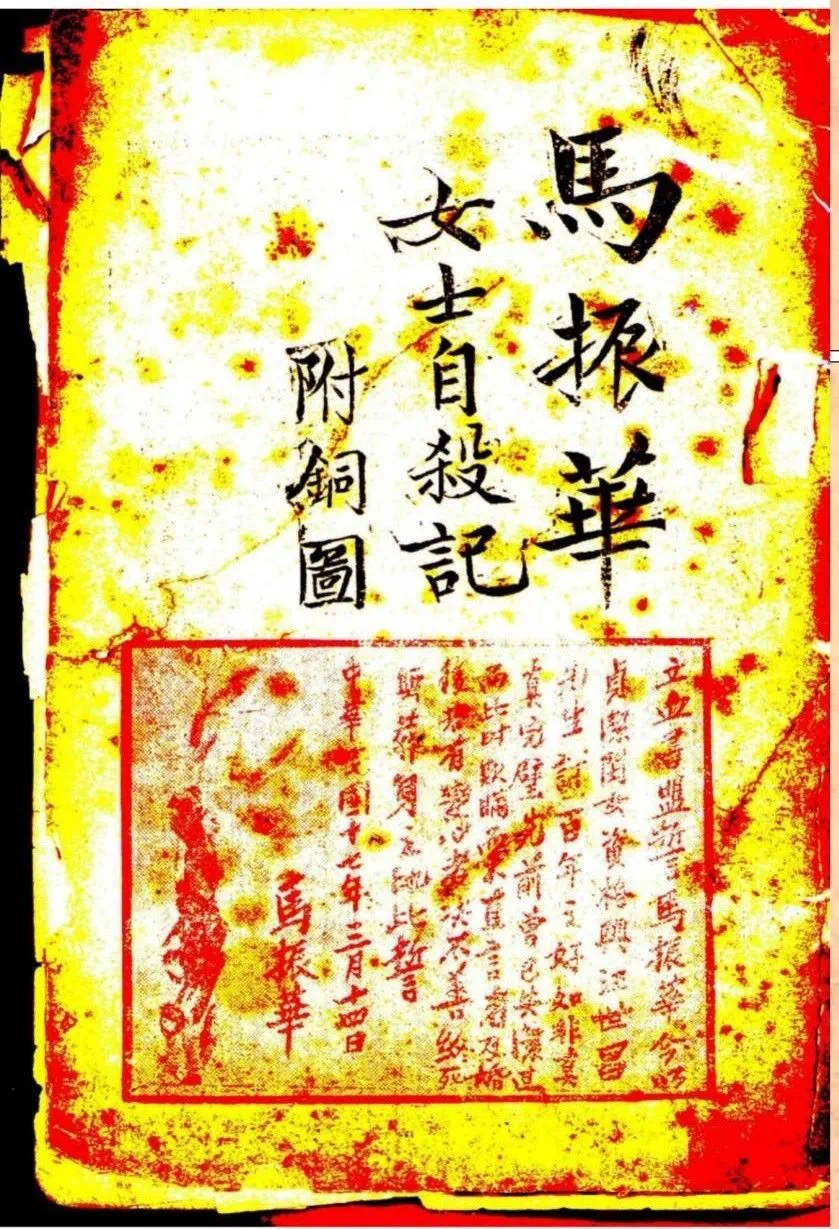 馬振華
女士自殺記
附銅圖
立血書盟誓馬振華今
貞潔閨女資格與汪世昌
先生訂百年之好如非真
真完璧先前曾已與
而此时欺瞞直言及婚
後若有變心者決不善終死
無葬身之地此誓
中華民國十七年三月十四日
馬振華